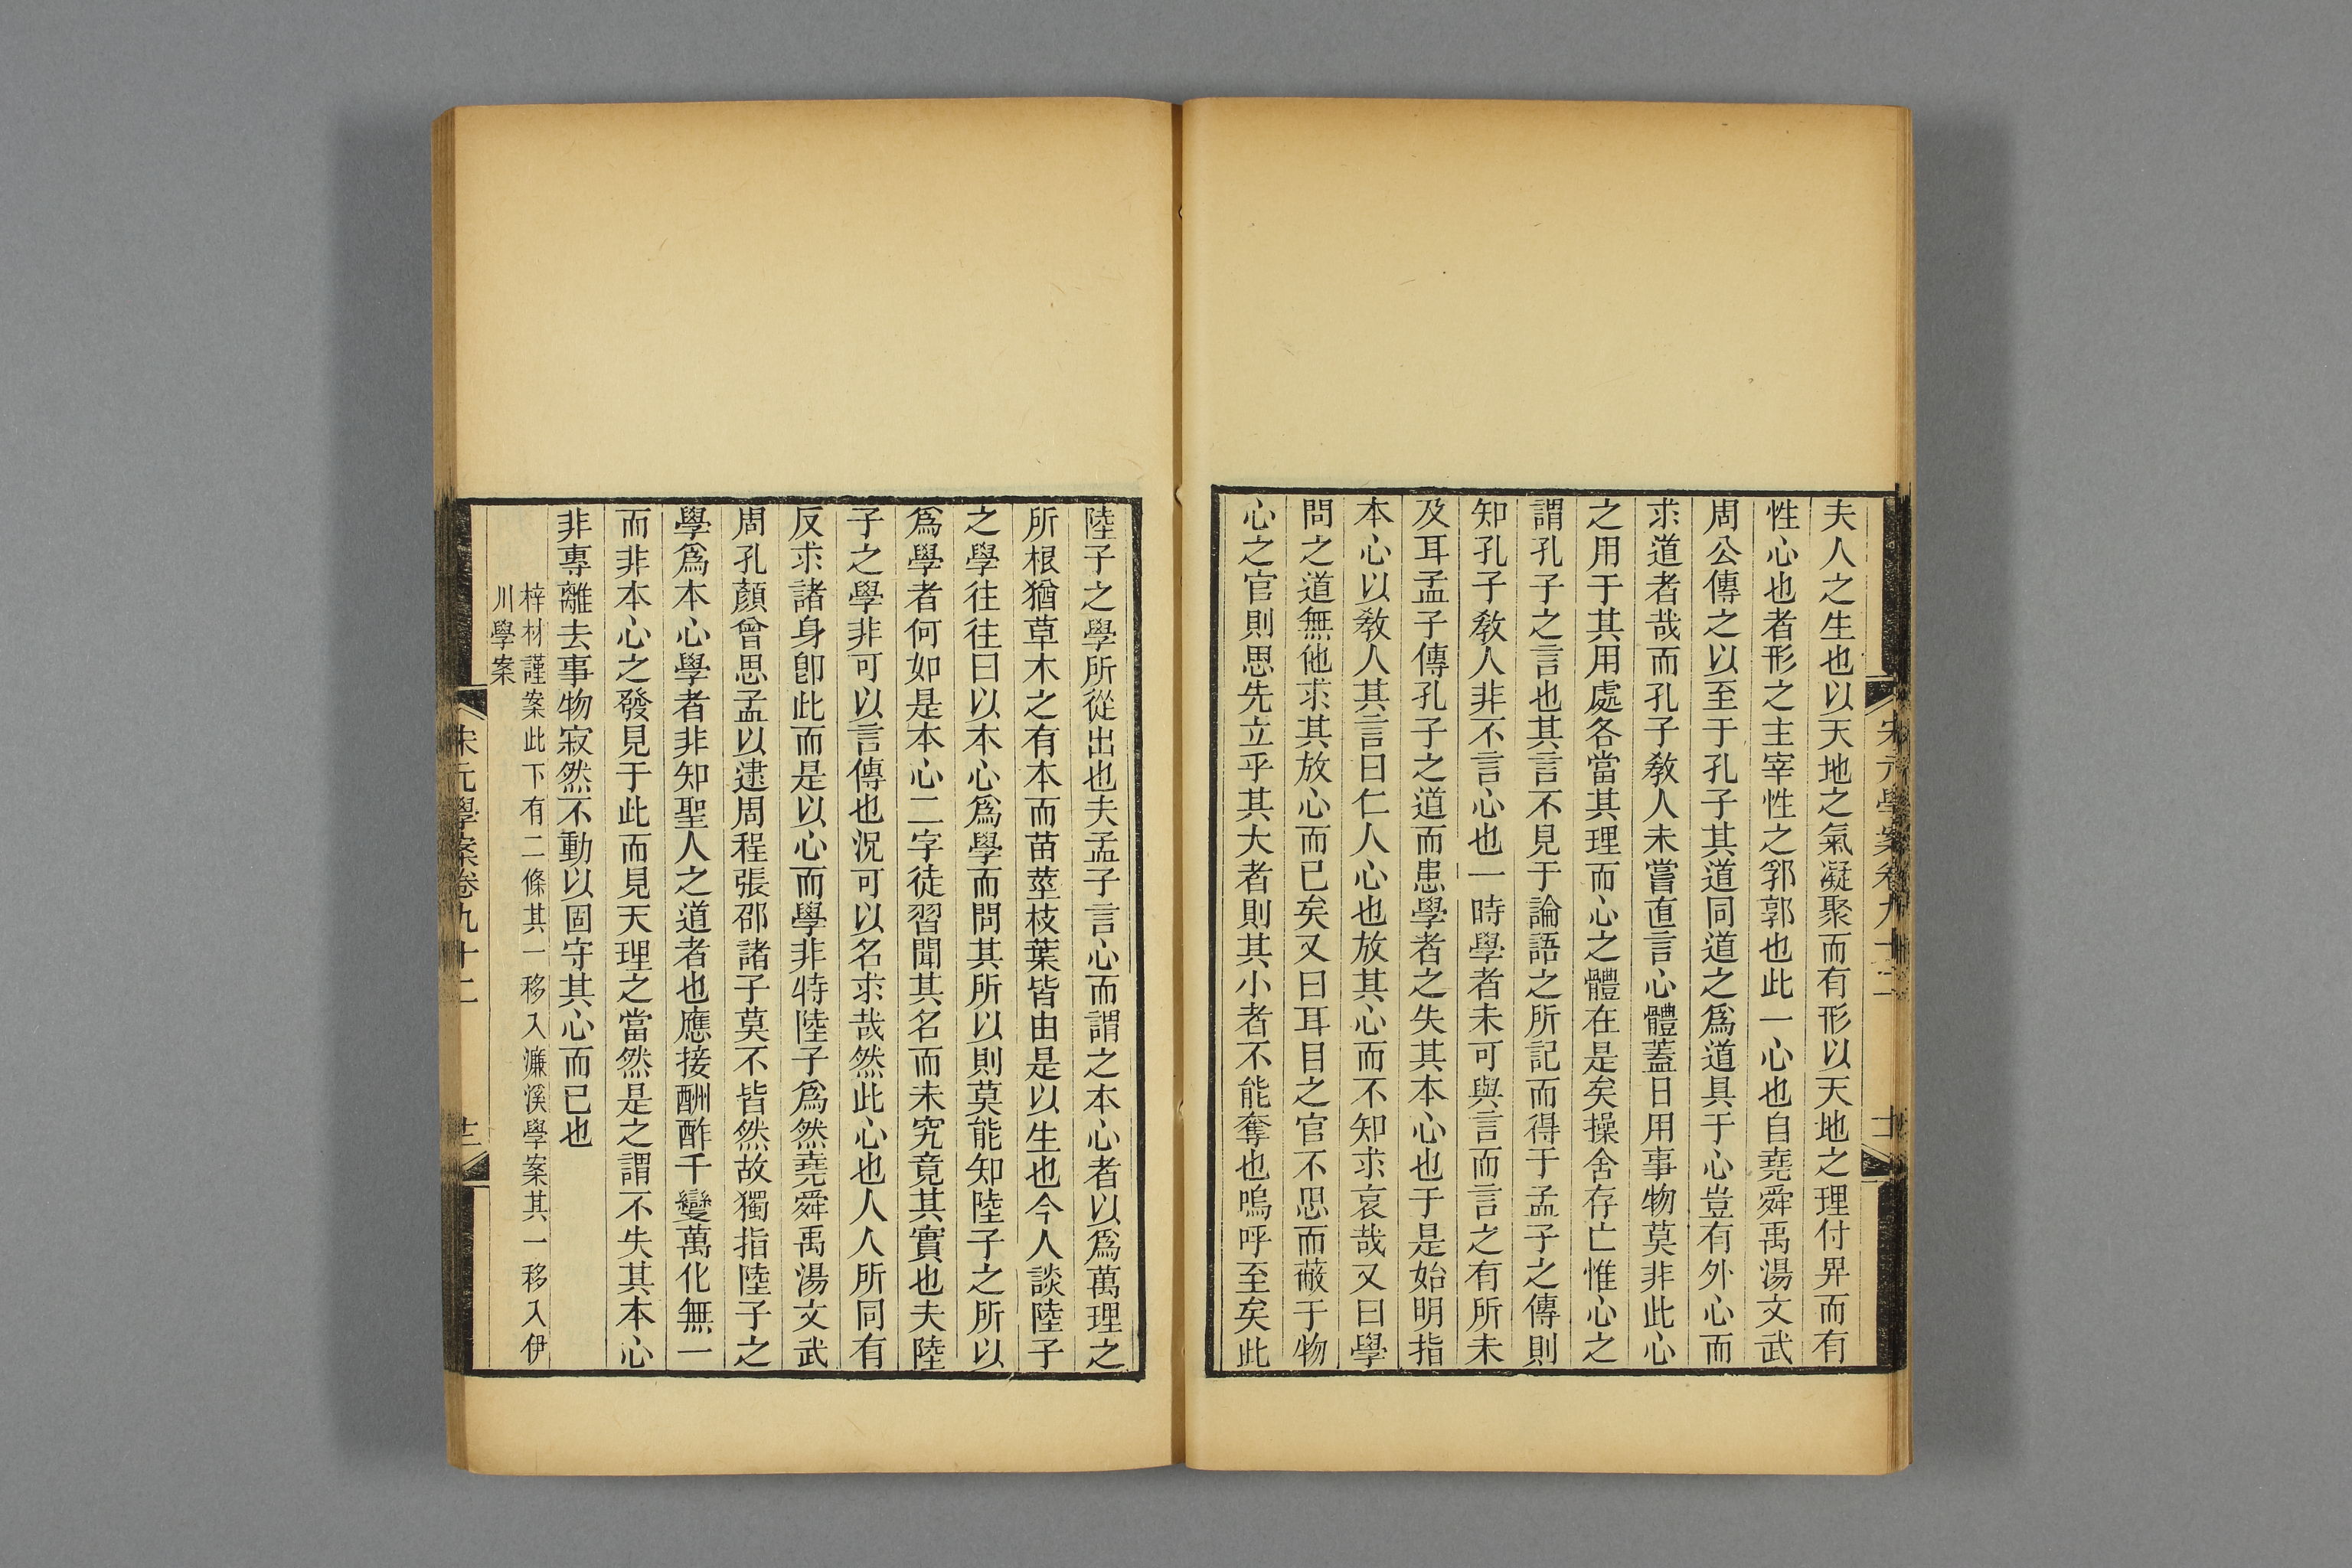 夫人之生也以天地之氣凝聚而有形以天地之理付畀而有
性心也者形之主宰性之郛郭也此一心也自堯舜禹湯文武
周公傳之以至于孔子其道同道之爲道具于心豈有外心而
求道者哉而孔子教人未嘗直言心體蓋日用事物莫非此心
之用于其用處各當其理而心之體在是矣操舍存亡惟心之
謂孔子之言也其言不見于論語之所記而得于孟子之傳則
知孔子教人非不言心也一時學者未可與言而言之有所未
及耳孟子傳孔子之道而患學者之失其本心也于是始明指
本心以教人其言曰仁人心也放其心而不知求哀哉又曰學
問之道無他求其放心而已矣又曰耳目之官不思而蔽于物
心之官則思先立乎其大者則其小者不能奪也嗚呼至矣此
陸子之學所從出也夫孟子言心而謂之本心者以爲萬理之
所根猶草木之有本而苗莖枝葉皆由是以生也今人談陸子
之學往往曰以本心爲學而問其所以則莫能知陸子之所以
爲學者何如是本心二字徒習聞其名而未究竟其實也夫陸
子之學非可以言傳也況可以名求哉然此心也人人所同有
反求諸身卽此而是以心而學非特陸子爲然堯舜禹湯文武
周孔顏曾思孟以逮周程張邵諸子莫不皆然故獨指陸子之
學爲本心學者非知聖人之道者也應接酬酢千變萬化無一
而非本心之發見于此而見天理之當然是之謂不失其本心
非專離去事物寂然不動以固守其心而已也
梓材謹案此下有二條其一移入濂溪學案其一移入伊
川學案
宋元學案卷九十二